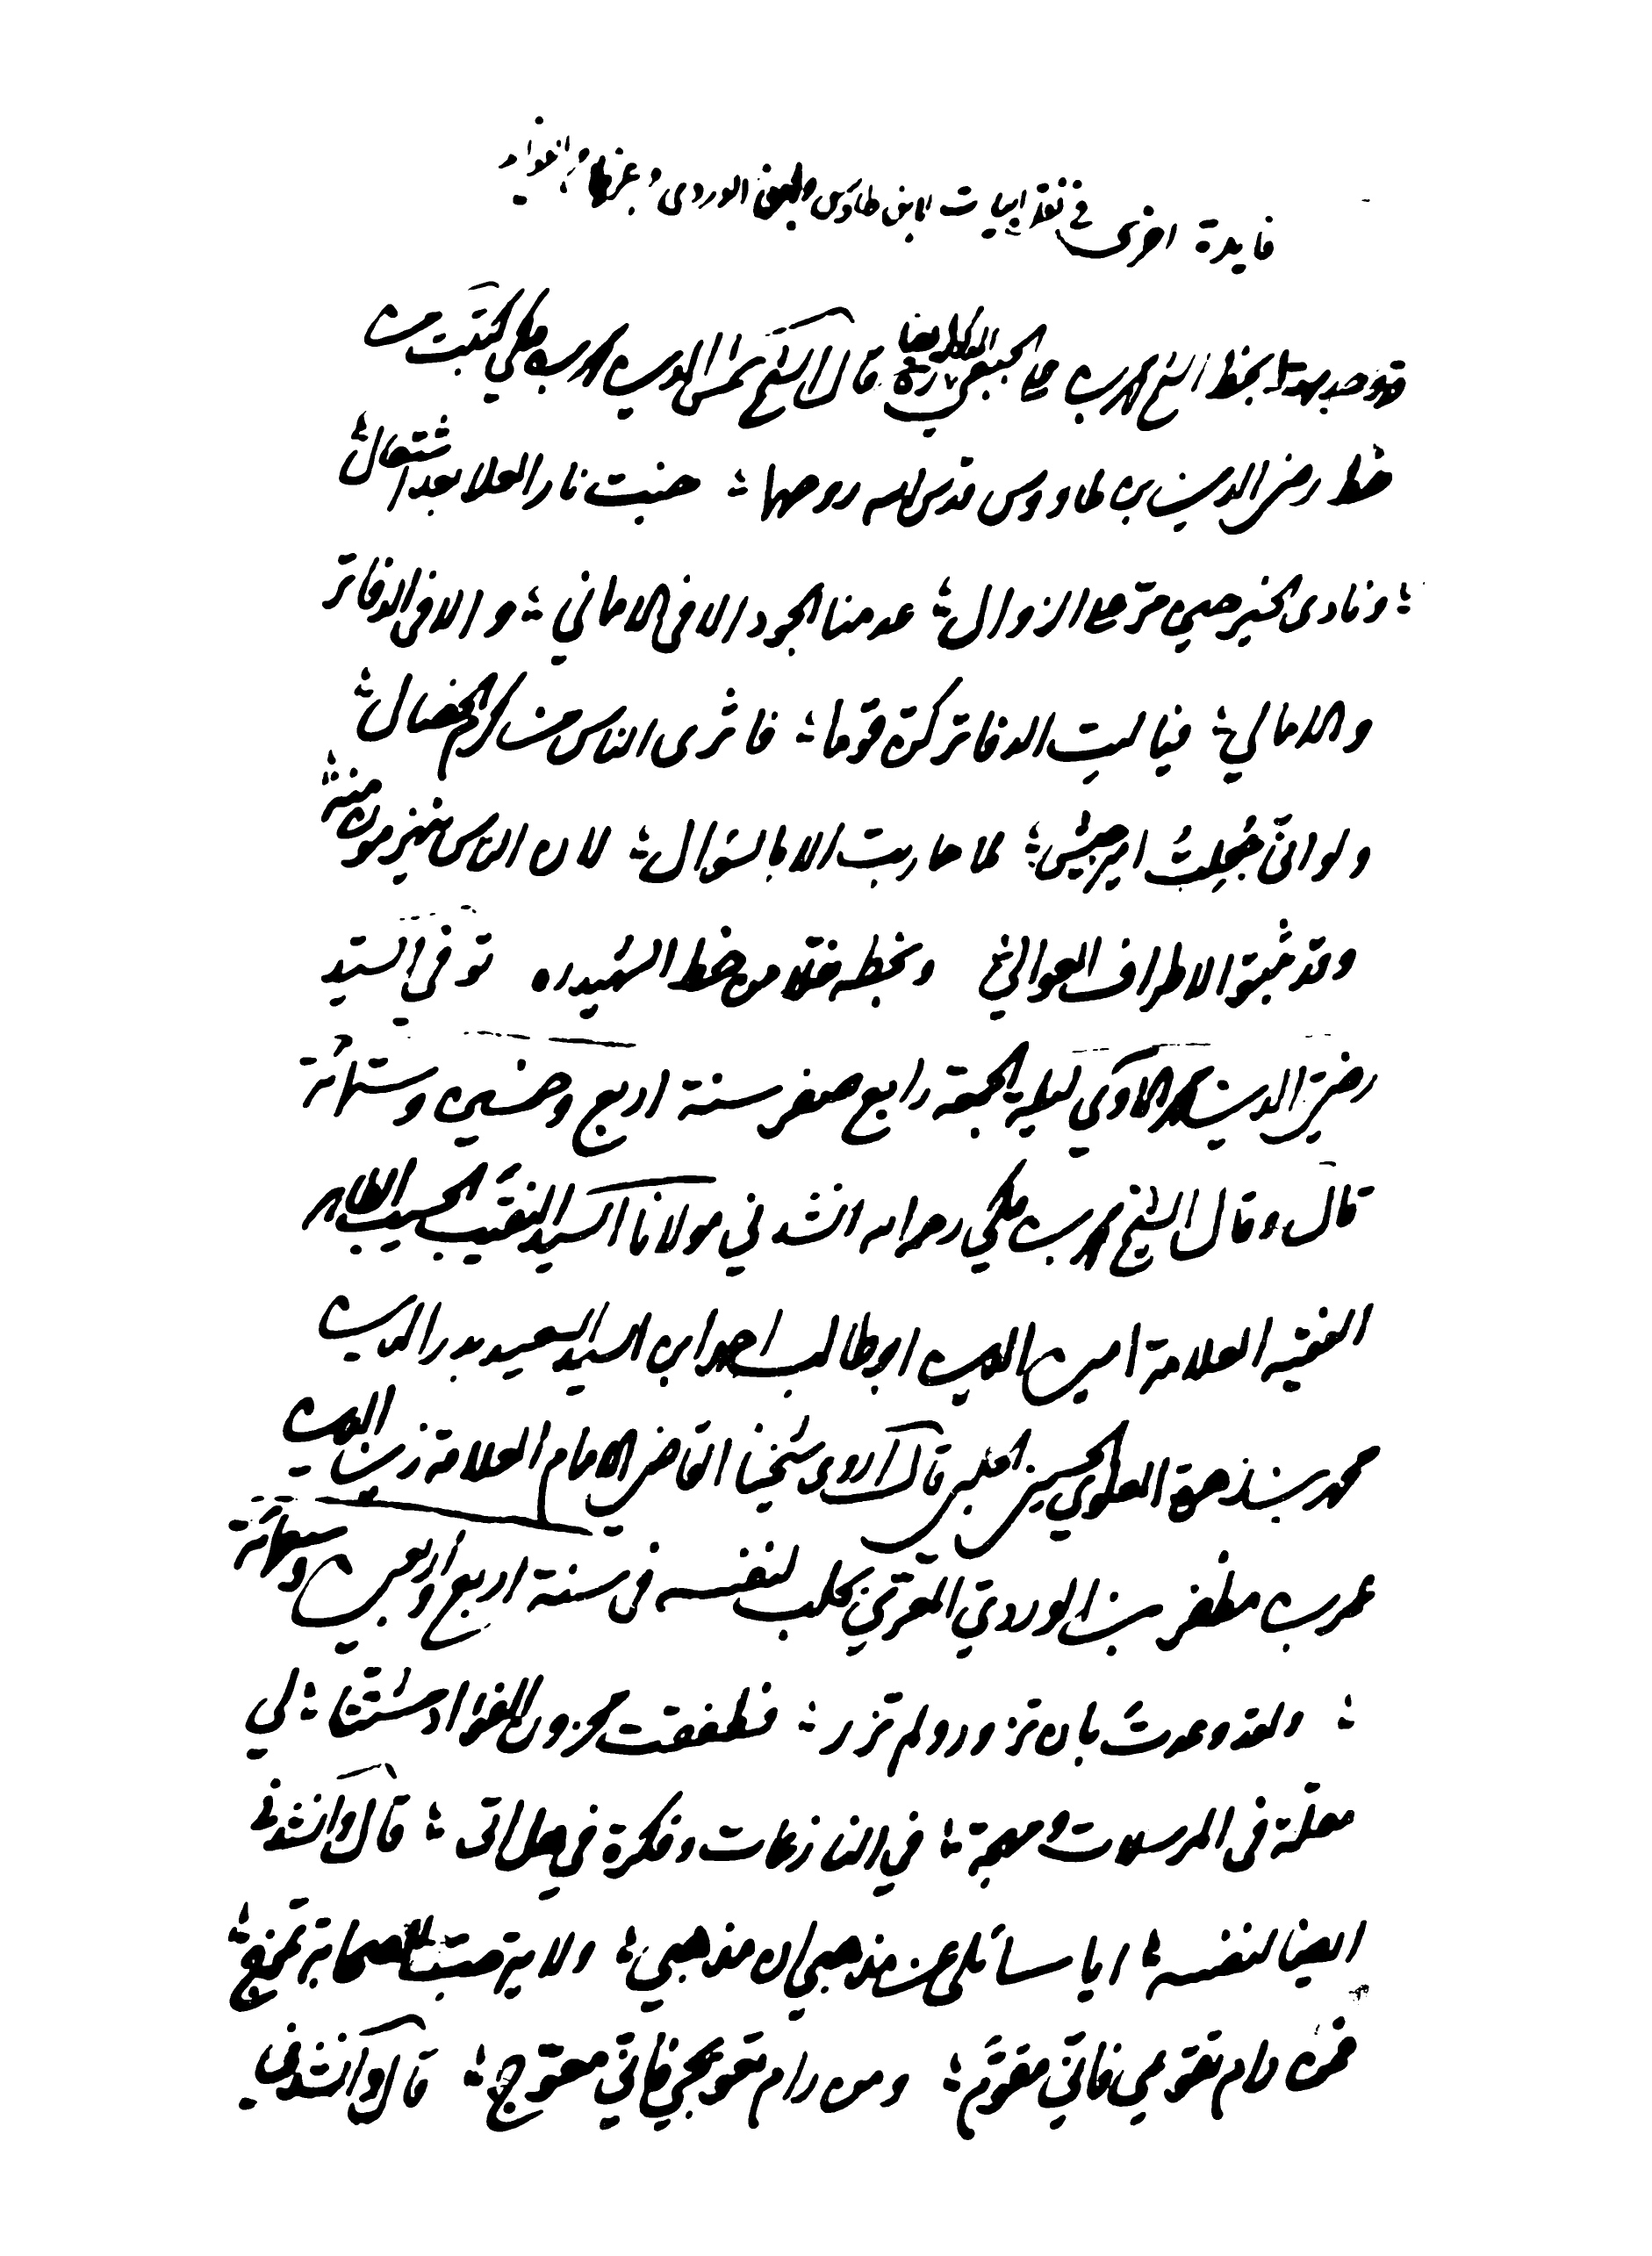 فايدة اخرى في نقل ابيات لابن طاوس ولابن الوردي وغيرها من الفوايد
قد وجدت بخط الشيخ محمد بن علي الجبعي ره قال الشيخ شمس الدين محمد بن مكي كتبت من
خط رضي الدين بن طاووس قدس الله روحهما ؛ خبت نار العلا بعد اشتعال ؛
؛ ونادى الخير حي على الزوال ؛ عدمنا الجود الا في الاماني ؛ و الا في الدفاتر
والامالي ؛ فيا ليت الدفاتر كن قوما ؛ فاثرى الناس من كرم الخصال ؛
ولو اني جُعِلتُ امير جيش ؛ لما حاربت الا بالسؤال ؛ لان الناس ينهزمون منه ؛
وقد ثبتوا لاطراف العوالي وبخطه نقلا من خط الشهيد ره توفي السيد
رضي الدين محمد الآوي ليلة الجمعة رابع صفر سنة اربع وخمسين وستمائة
قال وقال الشيخ محمد بن مكي رحمه الله انشدني مولانا السيد النقيب الحسيب الطاهر
الفقيه العلامة امين الدين ابو طالب احمد ابن السيد السعيد بدر الدين
محمد بن زهرة العلوي الحسيني الحلبي قال انشدني شيخنا القاضي الامام العلامة زين الدين
عمر بن مظفر بن الوردي المعري بحلب لنفسه في سنة اربع واربعين وسبعمائة
؛ ولقد وعدت بان تزور ولم تزر ؛ فطفقت محزون الفؤاد مشتتا ؛ لي
مقلة في المرسلات ومهجة ؛ في النازعات وفكرة في هل اتى ؛ قال وانشدني
ايضا لنفسه ؛ ايا سائلي عن مذهبي ان مذهبي ؛ ولاية حب للصحابة تمزج ؛
فمن رام تقويمي فاني مقوّم ؛ ومن رام تعويجي فاني معوّج ؛ قال وانشدني